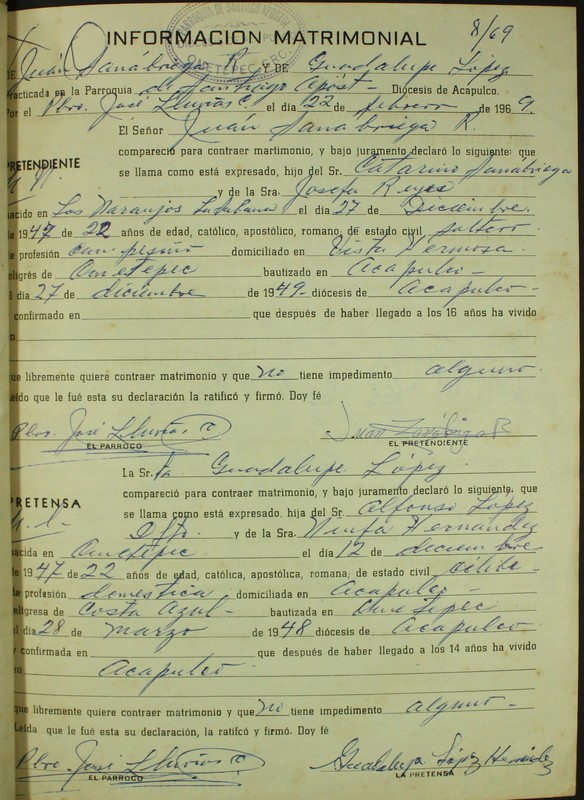 PARROQUIA DE SANTIAGO APOSTOL
OMETEPEC, GRO.
INFORMACION MATRIMONIAL 8/69
DE Juán Sanábriga R. Y DE Guadalupe López
Practicada en la Parroquia de Santiago Apóst- Diócesis de Acapulco.
Por el Pbro. José Lluvias C. el día 22 de febrero de 1969.
El Señor Juán Sanabriega R.
compareció para contraer martimonio, y bajo juramento declaró lo siguiente: que
PRETENDIENTE
se llama como está expresado, hijo del Sr. Catarino Sanábriega
y de la Sra. Josefa Reyes
nacido en Los Naranjos el día 27 de Diciembre.
de 1947 de 22 años de edad, católico, apostólico, romano, de estado civil soltero
de profesión campesino domiciliado en Vista Hermosa.
feligrés de Ometepec bautizado en Acapulco -
el día 27 de diciembre de 1949- diócesis de Acapulco-
y confirmado en que después de haber llegado a los 16 años ha vivido
que libremente quiere contraer matrimonio y que no tiene impedimento alguno.
Leído que le fué esta su declaración la ratificó y firmó. Doy fé
Pbro. José Lluvias C
EL PARROCO
EL PRETENDIENTE
La Sr.ta Guadalupe López
compareció para contraer matrimonio, y bajo juramento declaró lo siguiente: que
PRETENSA
se llama como está expresado, hija del Sr. Alfonso López
y de la Sra. Ninfa Hernández
nacida en Ometepec el día 12 de diciembre
de 1947 de 22 años de edad, católica, apostólica, romana, de estado civil célibe-
de profesión doméstica domiciliada en Acapulco-
feligresa de Costa Azul- bautizada en Ometepec
el día 28 de marzo de 1948 diócesis de Acapulco
y confirmada en que después de haber llegado a los 14 años ha vivido
en Acapulco
que libremente quiere contraer matrimonio y que no tiene impedimento alguno-
Leída que le fué esta su declaración, la ratifcó y firmó. Doy fé
Pbro. José Lluvias C Guadalupe López Hernández
EL PARROCO LA PRETENSA